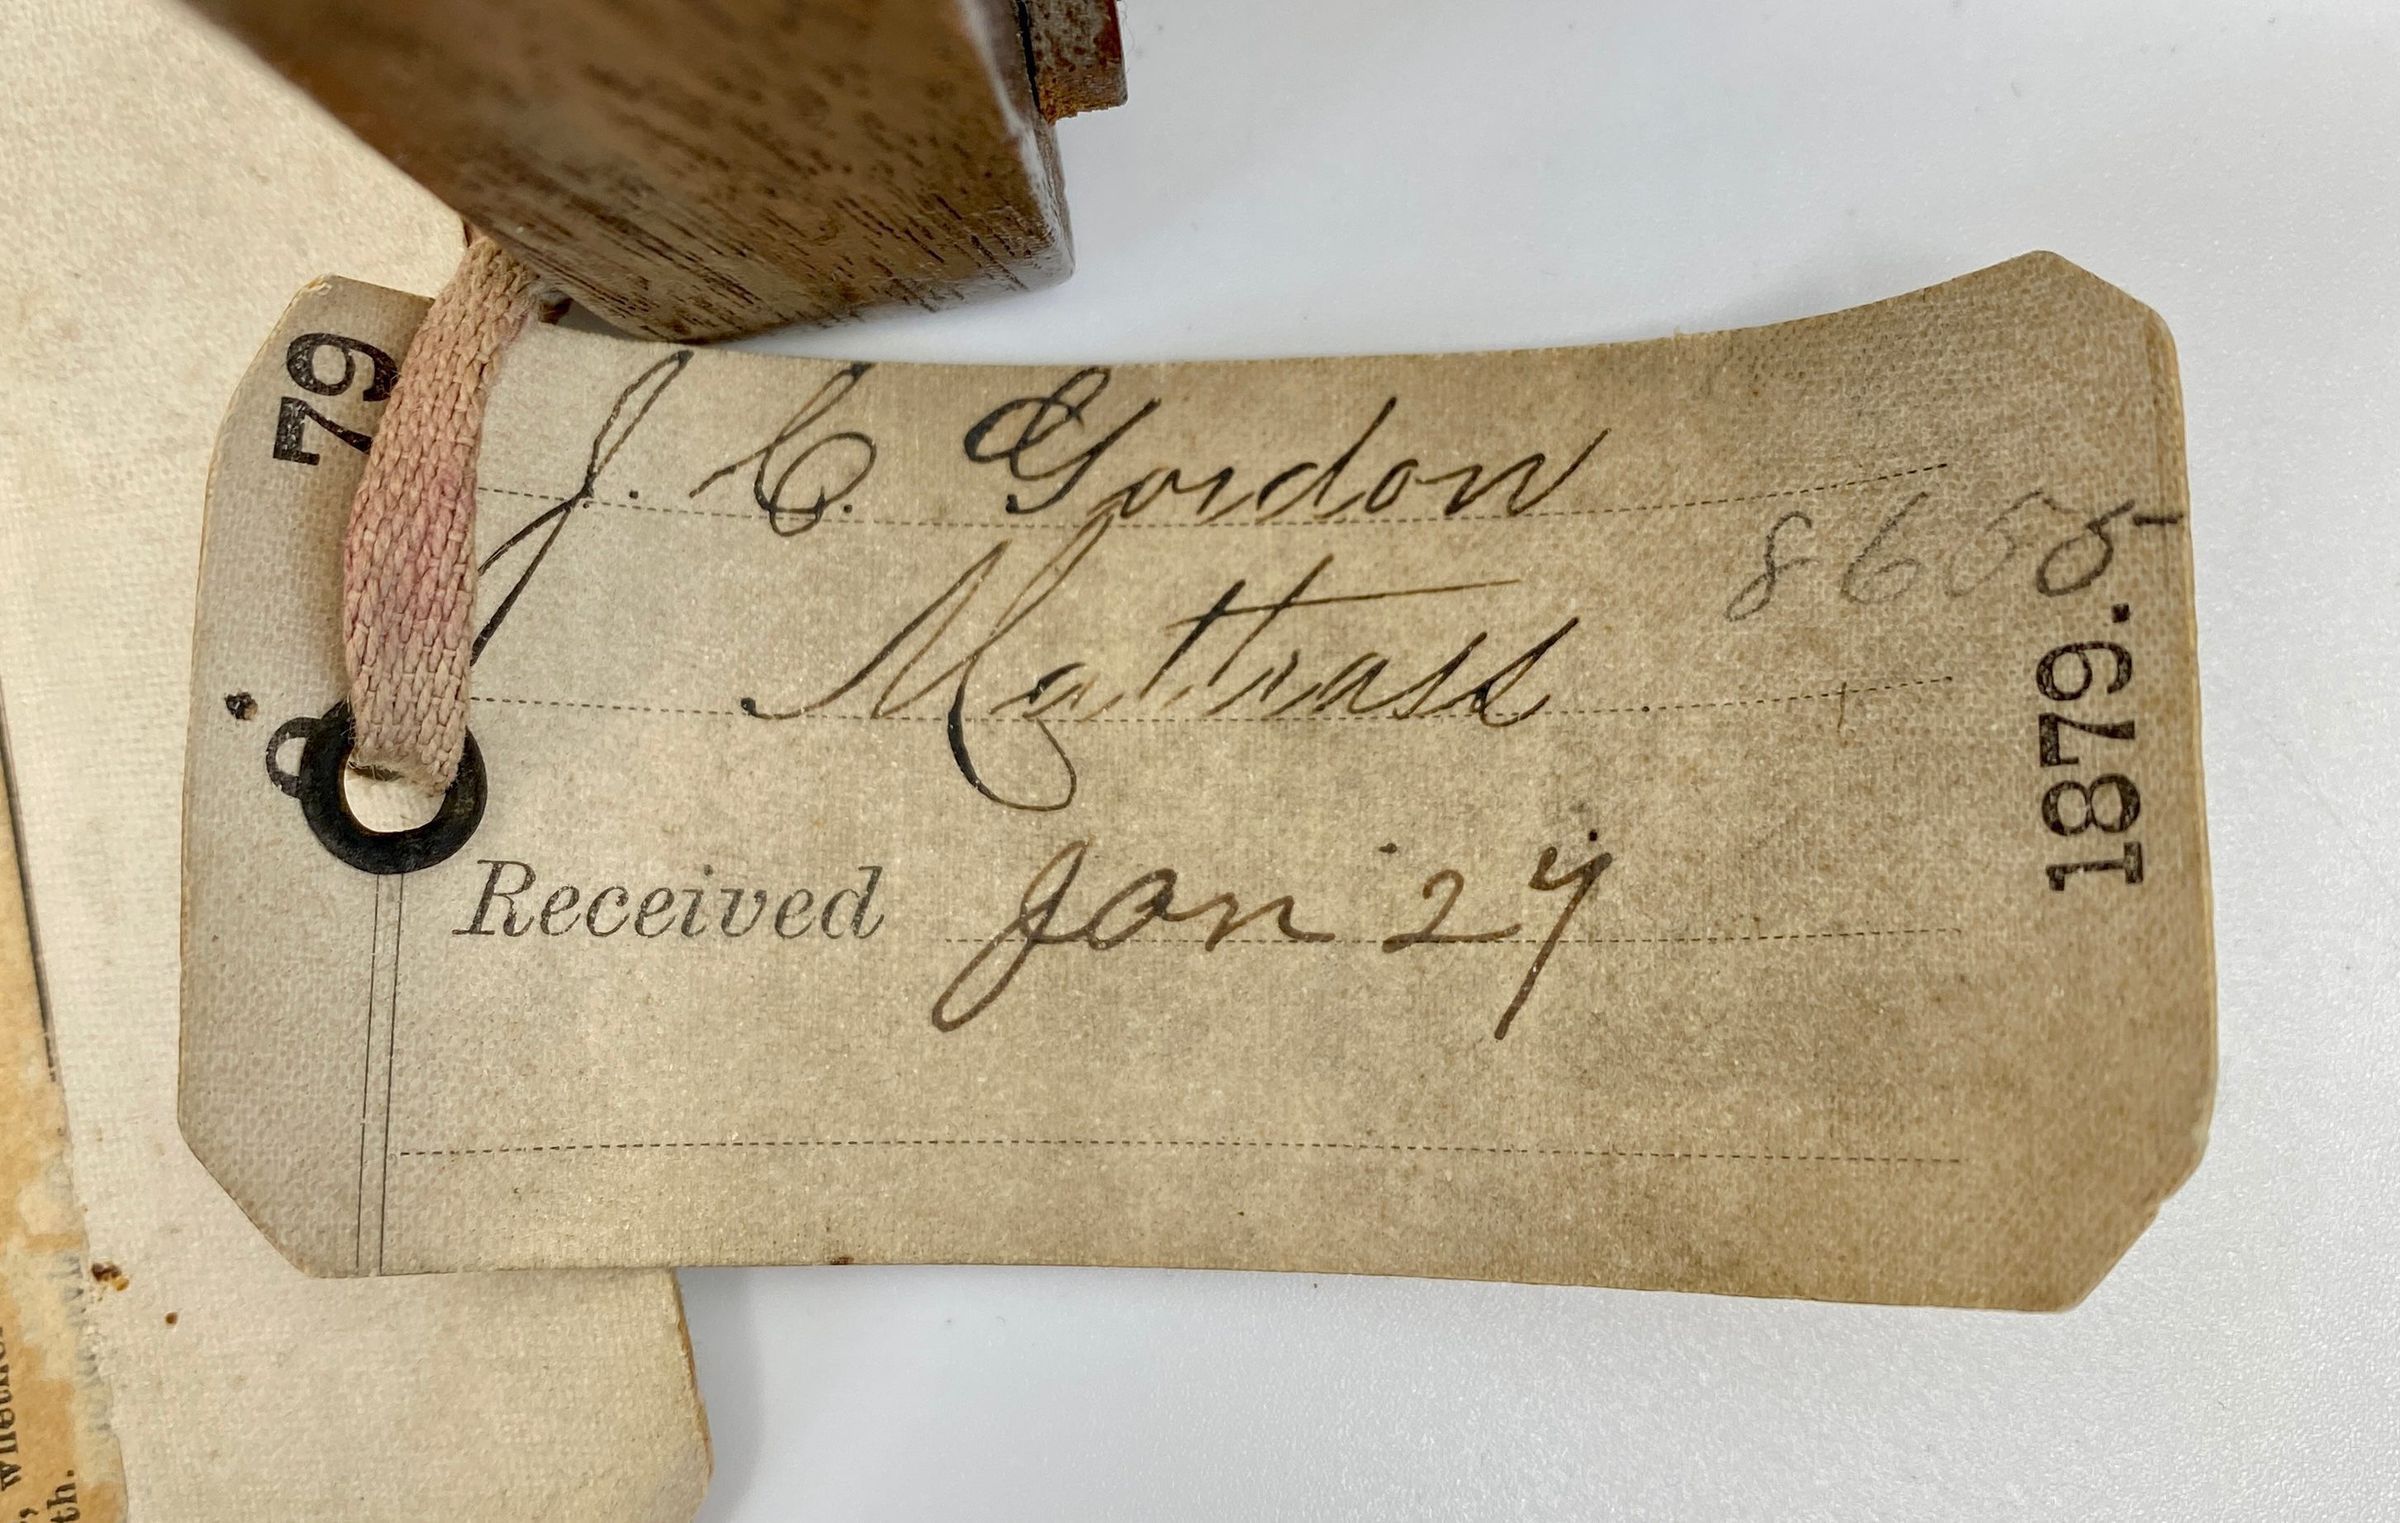 79
J. C. Gordon
8655
Mattrass
Received Jan 27
1879.
whether
th.